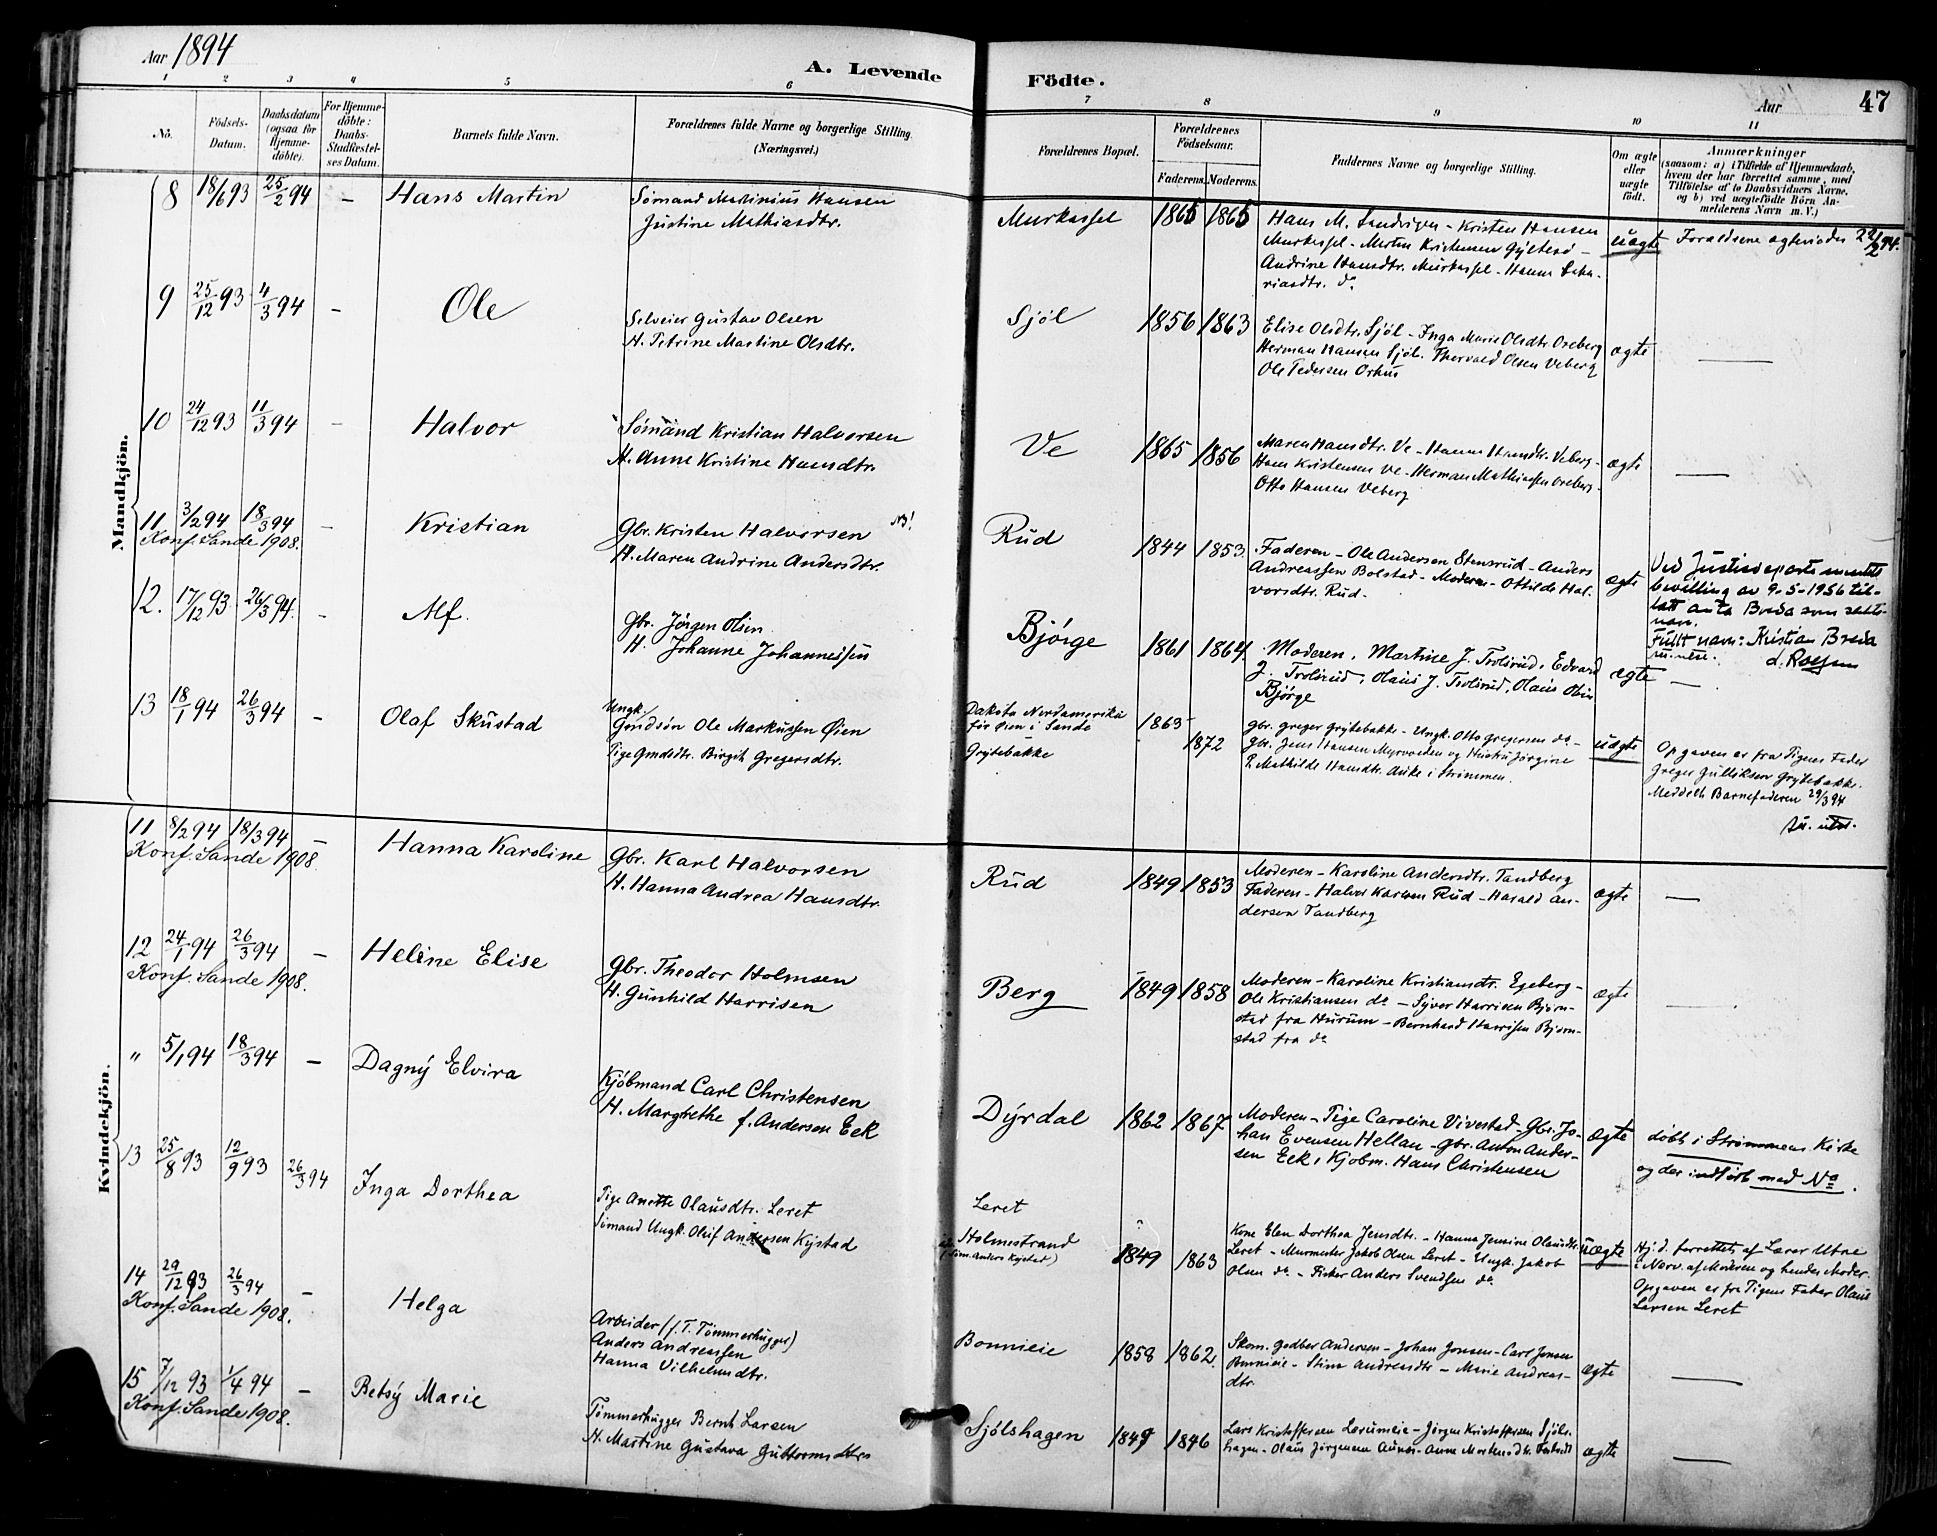 Aar 1894
A. Levende
Födte.
Aar
47
1 2 3 4 5 6 7 8 9 10 11
No.
Födsels-Datum.
Daabsdatum (ogsaa for Hjemme-döbte).
For Hjemme-döbte: Daabs-Stadfæstel-ses Datum.
Barnets fulde Navn.
Forældrenes fulde Navne og borgerlige Stilling.
(Næringsvei.)
Forældrenes Bopæl.
Forældrenes Födselsaar.
Faderens. Moderens.
Faddernes Navne og borgerlige Stilling.
Om ægte eller uægte födt.
Anmærkninger
(saasom: a) i Tilfælde af Hjemmedaab,
hvem der har forrettet samme, med
Tilföielse af to Daabsvidners Navne.
og b) ved uægtefödte Börn An-
melderens Navn m. V.)
Mandkjön.
8 18/6 93 25/2 94 – Hans Martin
Sømand Martinius Hansen
Justine Mathiasdtr.
Murkassel 1865 1865
Hans M. - Kristen Hansen
Murkassel - Kristensen
Andrine Hansdtr. Murkassel - Hanna Saka-
riasdtr. do
uægte
Forældrene 22/2 94.
9 25/12 93 4/3 94 – Ole
Selveier Gustav Olsen
H. Petrine Martine Olsdtr.
Sjøl 1856 1863
Elise Olsdtr. Sjøl - Inga Marie Olsdtr. Oreberg
Herman Hansen Sjøl. Thorvald Olsen Veberg
Ole Pedersen Orhus
ægte —
10 24/12 93 11/3 94 – Halvor
Sømand Kristian Halvorsen
H. Anne Kristine Hansdtr.
Ve 1865 1856
Maren Hansdtr. Ve - Hanna Hansdtr. Veberg -
Hans Kristensen Ve - Herman Mathiassen Oreberg -
Otto Hansen Veberg
ægte —
11 3/2 94 18/3 94 – Kristian
Konf. Sande 1908.
Gbr. Kristen Halvorsen NB!
H. Maren Andrine Andersdtr.
Rud 1844 1853.
Faderen - Ole Andersen Stensrud - Anders
Andreassen Bolstad - Moderen - Othilde Hal-
vorsdtr. Rud -
ægte
Ved Justisdepartementets
bevilling av 9-5-1956 til-
latt anta Breda som slekts-
navn.
Fullt navn: Kristian Breda
12. 17/12 93 26/3 94. – Alf.
Gbr. Jørgen Olsen
H. Johanne Johannessen
Bjørge 1861 1864.
Moderen, Martine J. Trolsrud, Edvard
J. Trolsrud, Olaus J. Trolsrud, Olaus Olsen
Bjørge
ægte —
13 18/1 94 26/3 94 – Olaf Skustad
Ungk.
Grdsøn Ole Markussen Øien
Pige Grdsdtr. Birgit Gregersdtr.
Dakota Nordamerika
før Øien i Sande
Grytebakke
1863 1872
Gbr. Greger Grytebakke - Ungk. Otto Gregersen do -
Gbr. Jens Hansen Myrvolden og Hustru Jørgine
P. Mathilde Hansdtr. i Strømmen.
uægte
Opgaven er fra Pigens Fader
Greger Gulliksen Grytebakke.
Meddelt Barnefaderen 29/3 94
Kvindekjön.
11 8/2 94 18/3 94 – Hanna Karoline
Konf. Sande 1908.
Gbr. Karl Halvorsen
H. Hanna Andrea Hansdtr.
Rud 1849 1853
Moderen - Karoline Andersdtr. Tandberg
Faderen - Halvor Karlsen Rud - Harald An-
dersen Tandberg
ægte —
12 24/1 94 26/3 94 – Heline Elise
Konf. Sande 1908.
Gbr. Theodor Holmsen
H. Gunhild Harrisen
Berg 1849 1858
Moderen - Karoline Kristiansdtr. Egeberg -
Ole Kristiansen do - Syver Harrisen Bjørn-
stad fra Hurum - Bernhard Harrisen Bjørn-
stad fra do
ægte
" 5/1 94 18/3 94 – Dagny Elvira
Kjøbmand Carl Christensen
H. Margrethe f. Andersen Eek
Dyrdal 1862 1867
Moderen - Pige Caroline Vivestad - Gbr. Jo-
han Evensen Hellan - Gbr. Anton Ander-
sen Eek, Kjøbm. Hans Christensen
ægte
døbt i Strømmens Kirke
og der indført med No .
13 25/8 93 12/9 93 26/3 94 Inga Dorthea
Pige Anette Olausdtr. Leret
Sømand Ungk. Oluf Andersen Kjystad
Leret
Holmestrand
1849 1863
Kone Elen Dorthea Jensdtr. - Hanna Jensine Olausdtr.
Leret - Murmester Jakob Olsen Leret - Ungk. Jakob
Olsen do - Fisker Anders Svendsen do
uægte
Hj. d. forrettet af Lærer Utne
i Nærv. af Moderen og hendes Moder.
Opgaven er fra Pigens Fader Olaus
Larsen Leret
14 29/12 93 26/3 94 – Helga
Konf. Sande 1908.
Arbeider (f. T. Tømmerhugger)
Anders Andreassen
Hanna Vilhelmsdtr.
Bonnieie 1858 1862
Skom. Godber Andersen - Johan Jonsen - Carl Jonsen
Bonnieie - Stina Andreasdtr - Marie Andreas-
dtr.
ægte —
15 7/12 93 1/4 94 – Betsy Marie
Konf. Sande 1908.
Tømmerhugger Bernt Larsen
H. Martine Gustava Guttormsdtr
Sjølshagen 1849 1846
Lars Kristoffersen - Jørgen Kristoffersen Sjøls-
hagen - Olaus Jørgensen - Anne
ægte —